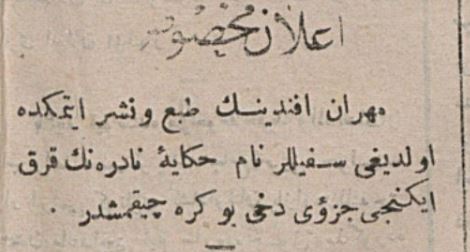 اعلان مخصوص
مهران افندينك طبع و نشر ايتمكده
اولديغى سفيللر نام حكايهٔ نادره‌نك قرق
ايكنجى جزؤى دخى بو كره چيقمشدر .